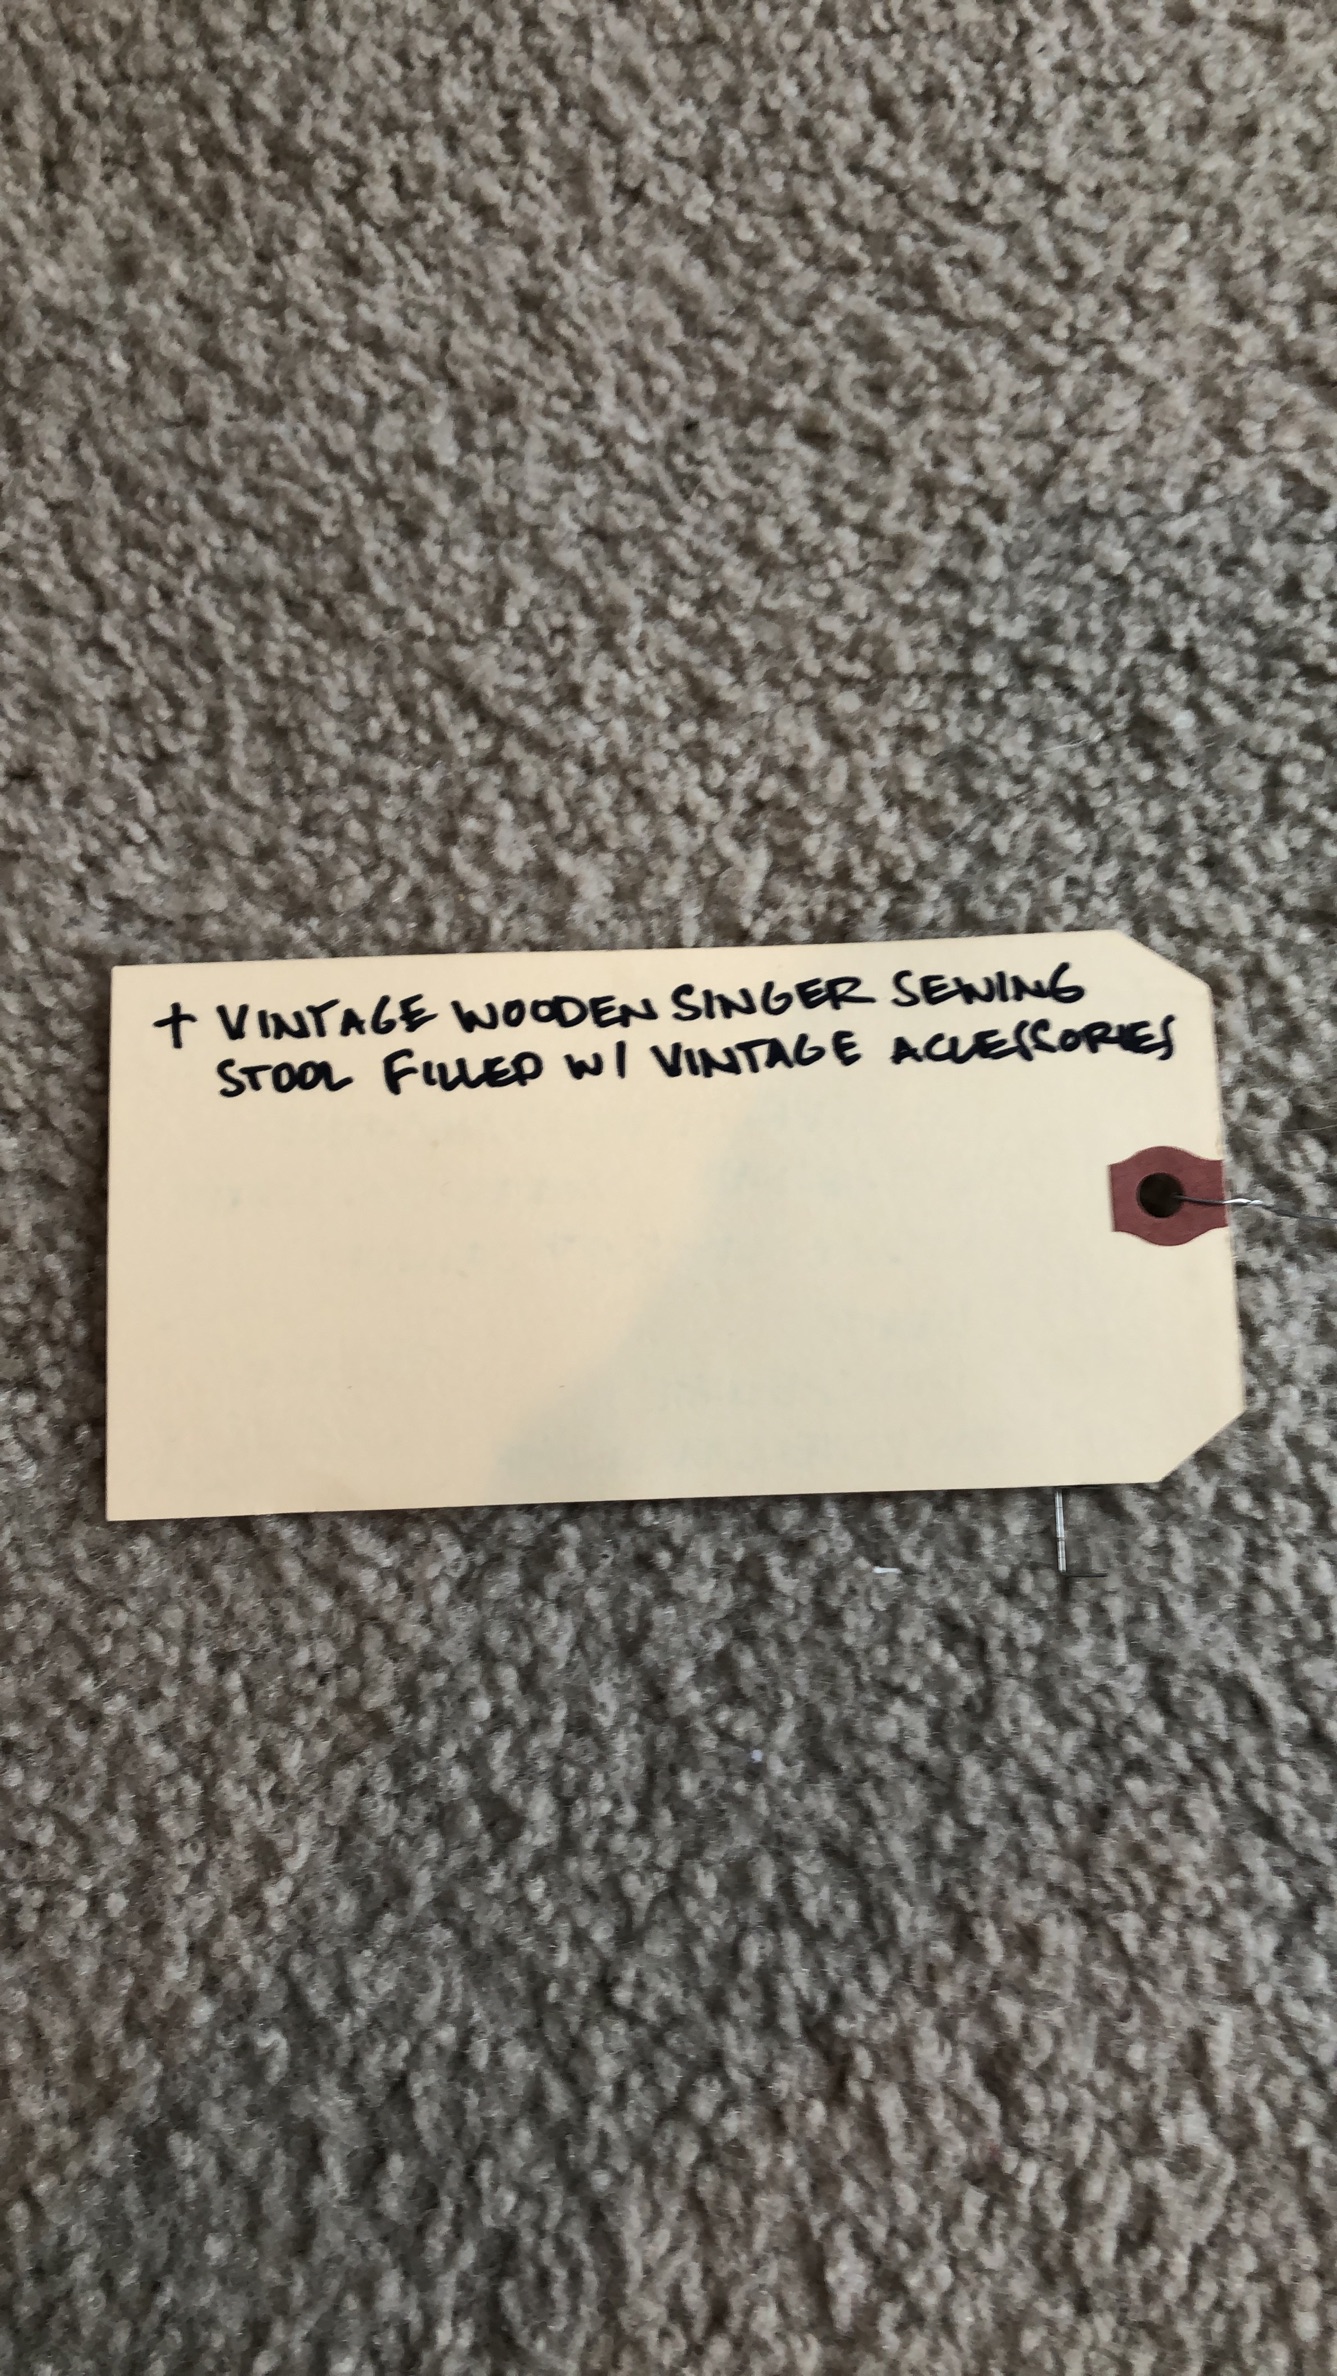 + VINTAGE WOODEN SINGER SEWING
STOOL FILLED W/ VINTAGE ACCESSORIES